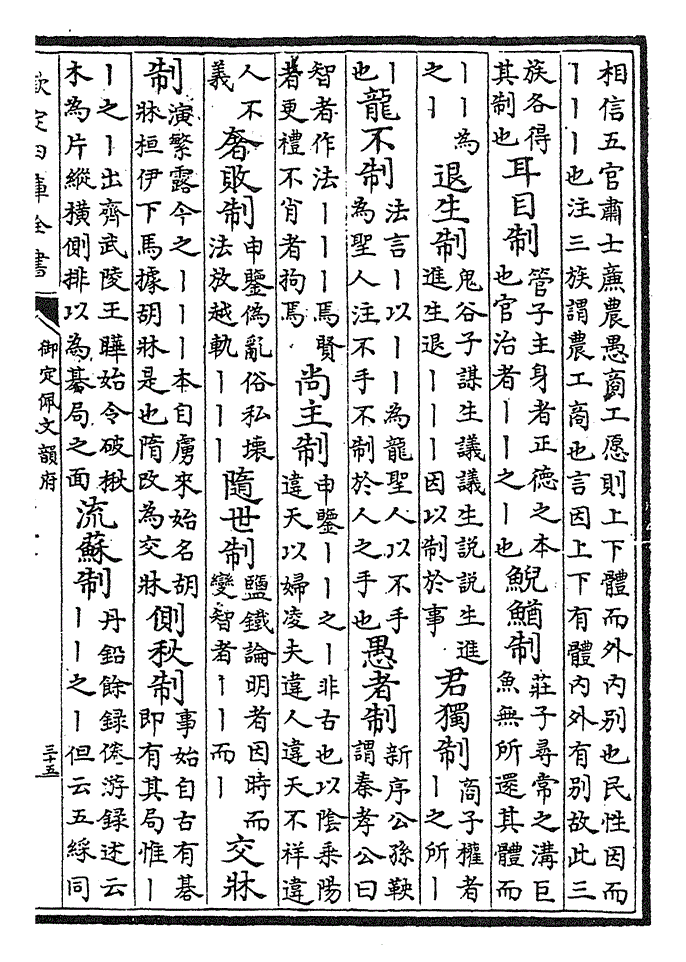 相信五官肅士亷農愚商工愿則上下體而外内别也民性因而
丨丨丨也注三族謂農工商也言因上下有體内外有别故此三
族各得
其制也
耳目制
管子主身者正德之本
也官治者丨丨之丨也
鯢鰌制
莊子尋常之溝巨
魚無所還其體而
丨丨為
之丨
退生制
鬼谷子謀生議議生説説生進
進生退丨丨丨因以制於事
君獨制
商子權者
丨之所丨
丨
也
龍不制
法言丨以丨丨為龍聖人以不手
為聖人注不手不制於人之手也
愚者制
新序公孫鞅
謂秦孝公曰
智者作法丨丨丨焉賢
者更禮不肖者拘焉
尚主制
申鑒丨丨之丨非古也以陰乗陽
違天以婦凌夫違人違天不祥違
人不
義
奢敗制
申鑒偽亂俗私壊
法放越軌丨丨丨
隨世制
鹽鐵論明者因時而
變智者丨丨而丨
交牀
制
演繁露今之丨丨丨本自虜來始名胡
牀桓伊下馬據胡牀是也隋改為交牀
側秋制
事始自古有碁
即有其局惟丨
丨之丨出齊武陵王曄始令破楸
木為片縱橫側排以為碁局之面
流蘇制
丹鉛餘録倦游録述云
丨丨之丨但云五綵同
欽定四庫全書
御定佩文韻府
三十五